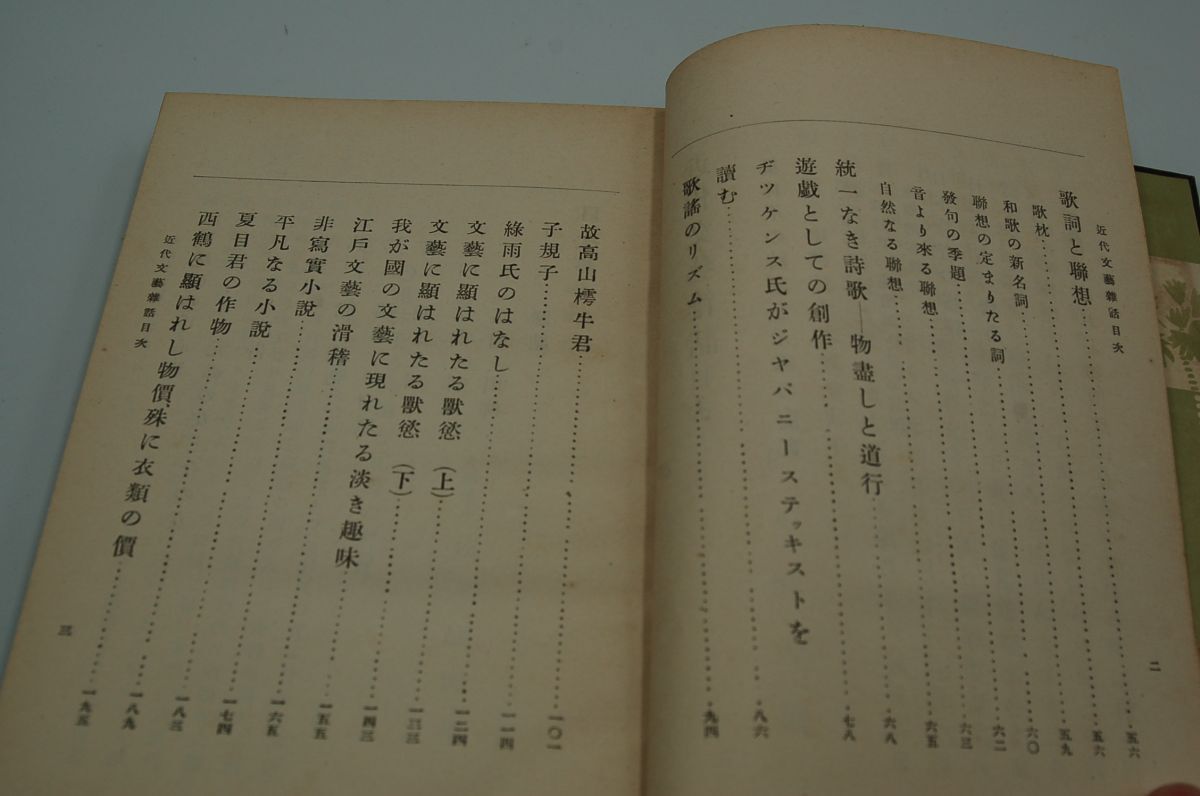 近代文藝雜話目次
歌詞と聯想……五六
歌枕……五六
和歌の新名詞……五九
聯想の定まりたる詞……六〇
發句の季題……六二
音より來る聯想……六三
自然なる聯想……六五
統一なき詩歌―物盡しと道行……六八
遊戯としての創作……七八
ヂツケンス氏がジヤパニーステッキストを
讀む……八六
歌謠のリズム……九四
二
故高山樗牛君……一〇一
子規子……一一四
綠雨氏のはなし……一二四
文藝に顯はれたる獸慾（上）……一三三
文藝に顯はれたる獸慾（下）……一四三
我が國の文藝に現れたる淡き趣味……一五五
江戶文藝の滑稽……一六五
非寫實小說……一七四
平凡なる小說……一八三
夏目君の作物……一八九
西鶴に顯はれし物價、殊に衣類の價……一九五
近代文藝雜話目次
三